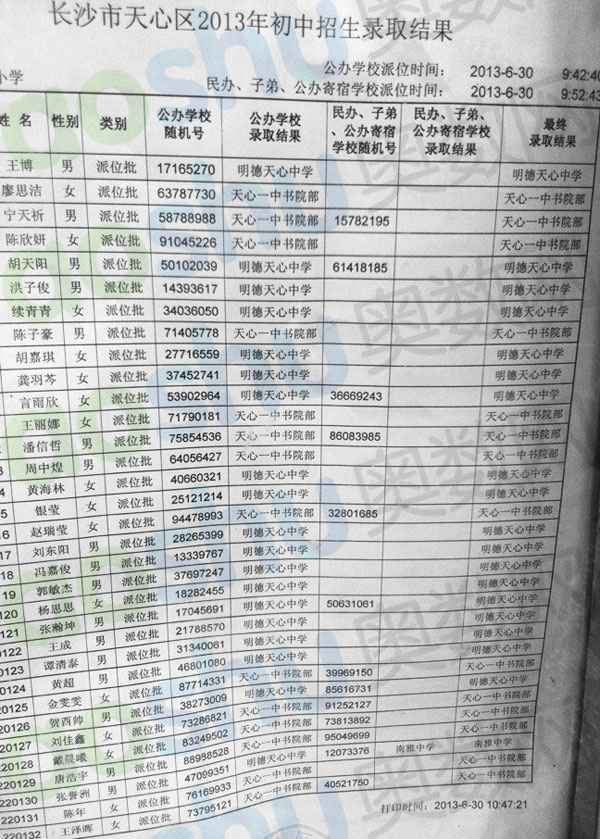 长沙市天心区2013年初中招生录取结果
小学 公办学校派位时间: 2013-6-30 9:42:40
民办、子弟、公办寄宿学校派位时间: 2013-6-30 9:52:43
姓 名 性别 类别 公办学校随机号 公办学校录取结果 民办、子弟、公办寄宿学校随机号 民办、子弟、公办寄宿学校录取结果 最终录取结果
王博 男 派位批 17165270 明德天心中学 明德天心中学
廖思洁 女 派位批 63787730 天心一中书院部 天心一中书院部
宁天祈 男 派位批 58788988 天心一中书院部 15782195 天心一中书院部
陈欣妍 女 派位批 91045226 天心一中书院部 天心一中书院部
胡天阳 男 派位批 50102039 明德天心中学 61418185 明德天心中学
洪子俊 男 派位批 14393617 明德天心中学 明德天心中学
续青青 女 派位批 34036050 明德天心中学 明德天心中学
陈子豪 男 派位批 71405778 天心一中书院部 天心一中书院部
胡嘉琪 女 派位批 27716559 明德天心中学 明德天心中学
龚羽芩 女 派位批 37452741 明德天心中学 明德天心中学
言雨欣 女 派位批 53902964 明德天心中学 36669243 明德天心中学
王丽娜 女 派位批 71790181 天心一中书院部 天心一中书院部
2 潘信哲 男 派位批 75854536 天心一中书院部 86083985 天心一中书院部
3 周中煌 男 派位批 64056427 天心一中书院部 天心一中书院部
4 黄海林 女 派位批 40660321 明德天心中学 明德天心中学
5 银莹 女 派位批 25121214 明德天心中学 明德天心中学
16 赵瑞莹 女 派位批 94478993 天心一中书院部 32801685 天心一中书院部
17 刘东阳 男 派位批 28265399 明德天心中学 明德天心中学
18 冯嘉俊 男 派位批 13339767 明德天心中学 明德天心中学
19 郭敏杰 男 派位批 37697247 明德天心中学 明德天心中学
120 杨思思 女 派位批 18282455 明德天心中学 明德天心中学
121 张瀚坤 男 派位批 17045691 明德天心中学 50631061 明德天心中学
王成 男 派位批 21788570 明德天心中学 明德天心中学
20123 谭清泰 男 派位批 31340061 明德天心中学 明德天心中学
20124 黄超 男 派位批 46801080 明德天心中学 明德天心中学
20125 金雯雯 女 派位批 87714331 天心一中书院部 39969150 天心一中书院部
20126 贺酉帅 男 派位批 38273009 明德天心中学 85616731 明德天心中学
20127 刘佳鑫 女 派位批 73286821 天心一中书院部 91252127 天心一中书院部
220128 戴晨曦 女 派位批 83249502 天心一中书院部 73813892 天心一中书院部
220129 唐浩宇 男 派位批 88988528 天心一中书院部 95049699 天心一中书院部
张誉洲 男 派位批 47099351 明德天心中学 12073376 南雅中学 南雅中学
220131 陈年 女 派位批 76169933 天心一中书院部 天心一中书院部
220132 王泽晖 女 派位批 73795121 天心一中书院部 40521750 天心一中书院部
打印时间: 2013-6-30 10:47:21